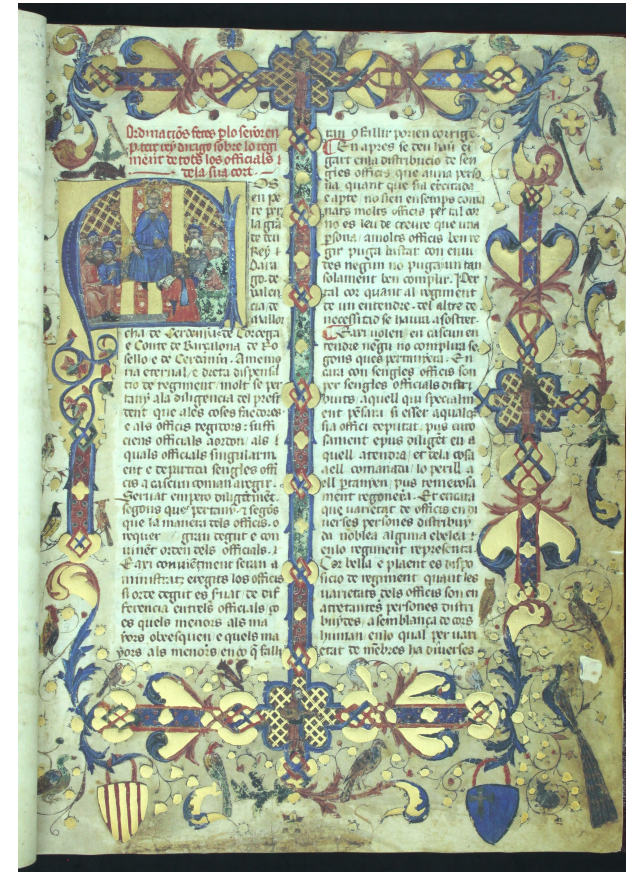 Ordinacions fetes plo senyor en
p. terç rey darago sobre lo regi
ment de tots los officials
dela sua cort
OS
en pe
re per
la gra
de deu
Rey
Dara
go. de
valen
cia. de
mallor
cha de Serdenya. e de Corcega
e Conte de Barçalona. de Ro
sello e de Cerdanya. A memo
ria eternal. e dreta dispensa
cio de regiment molt se per
tany ala diligencia del presi
dent que ales coses faedores
e als officis regidors: suffi
ciens officials aordon. als
quals officials singularm
ent e departida sengles offi
cis a cascun coman a regir.
Servat empero diligetment.
segons que pertany. e segons
que la manera dels officis. o
requer gran degut e con
uinent orden dels officials.
E axi conuinetment seran a
ministrats e regits los officis
si orde degut es servat de dif
ferencia entrels officials ço
es quels menors als ma
yors obeesquen e quels ma
yors als menors en ço q fall
ran o fallir porien corrige
En apres se deu hau es
gart en la distribucio de sen
gles officis que a una perso
na. quant que sia exercitada
e apte. no sien ensemps coma
nats molts officis per tal cor
no es leu de creure que una
psona. a molts officis ben re
gir puga bastar com enui
des negun no puga un tan
solament ben complir. Per
tal cor quant al regiment
de un entendre. del altre de
necessitat se hauria a fostrer.
E axi volen. en cascun en
tendre negu no complira se
gons ques pertanyera. En
cara com sengles officis son
per sengles officials distri
buits. aquell qui specialm
ent pensara si esser aqualqe
sia offici deputat. pus curo
sament e pus diliget en a
quell atendra. et dela cosa
aell comanada. lo perill a
ell ptanyen. pus temerosa
ment regonexera. Et encara
que varietat de officis en di
uerses persones distribuy
da noblea alguna e belea
en lo regiment representa.
Cor bella e plaent es dispo
sicio de regiment quant les
uarietats dels officis son en
atretantes persones distri
buydes. a semblança de cors
human. en lo qual per uari
etat de mebres ha diuerses